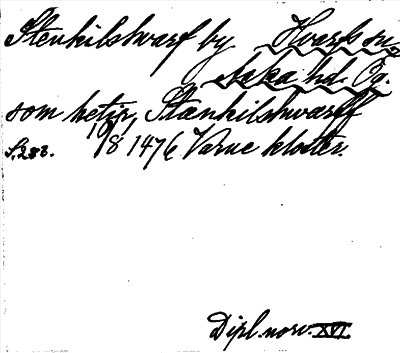 Stenhilshvarf by Hvarfs sn,
Aska hd. Ög.
som hetir, Stænkilshwarff
S. 283. 19/8 1476 Varne kloster.
Dipl. norv. XVI.